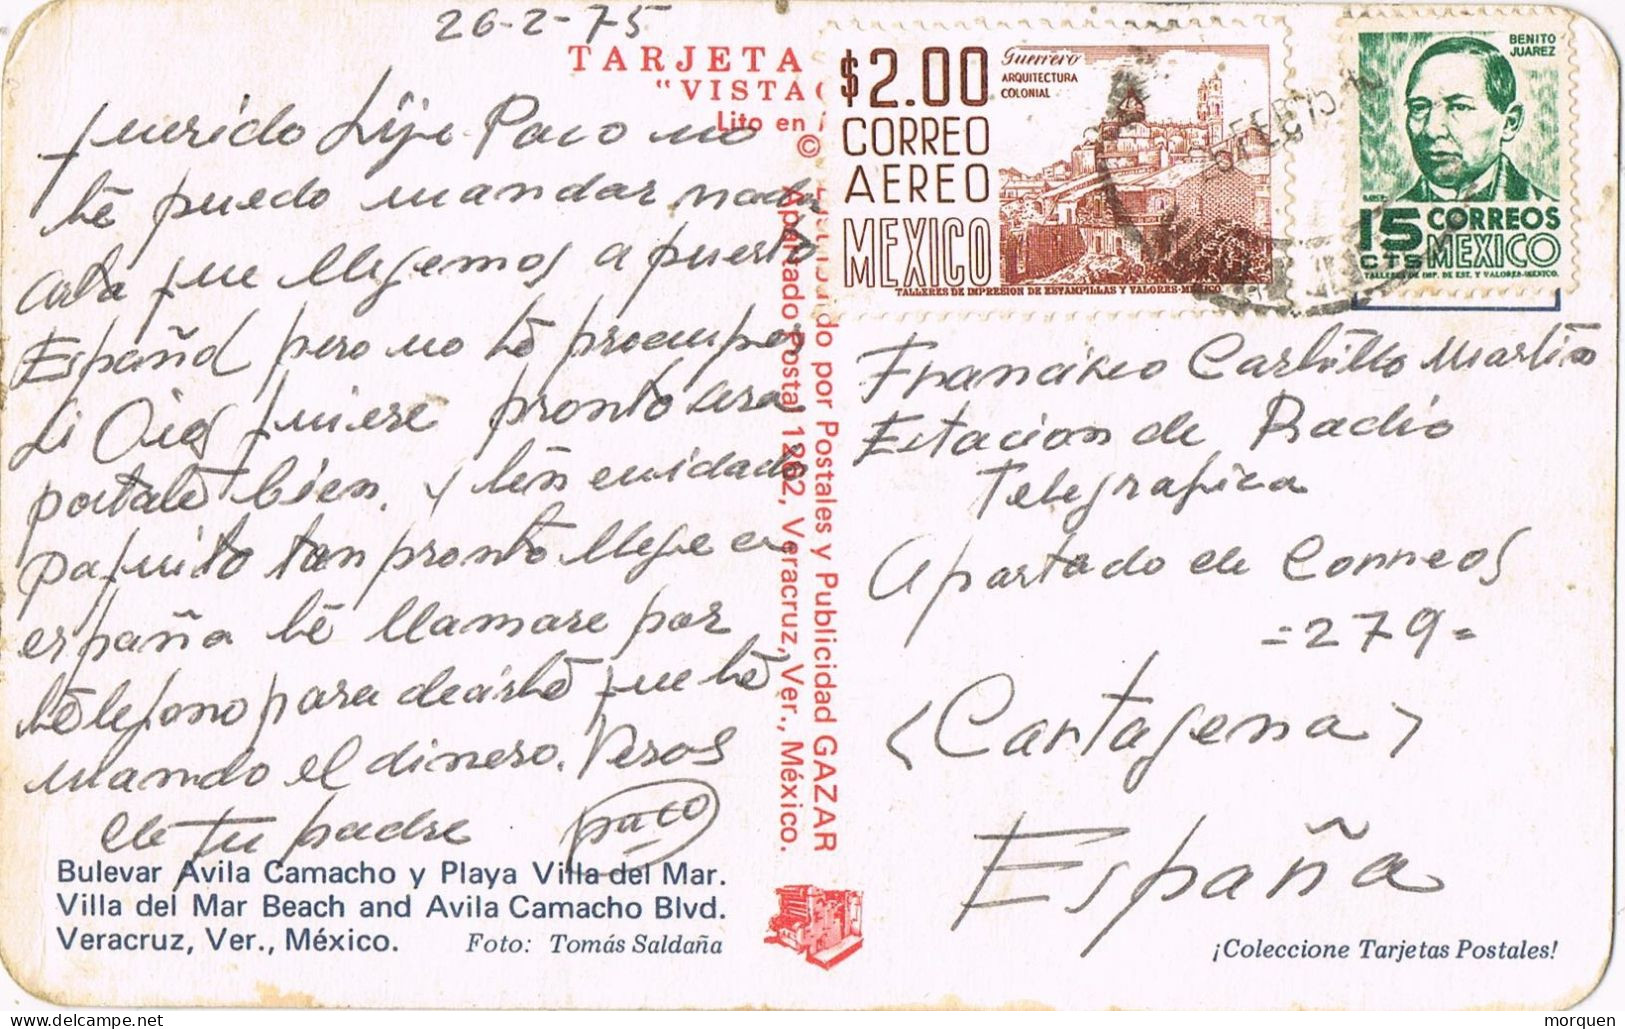 26-2-75
TARJETA
"VISTA
Lito en
$2.00
CORREO
AEREO
MEXICO
Guerrero
ARQUITECTURA
COLONIAL
TALLERES DE IMPRESION DE ESTAMPILLAS Y VALORES-MEXICO
FEB 75
BENITO
JUAREZ
15 CORREOS
CTS MEXICO
TALLERES DE IMP. DE EST. Y VALORES-MEXICO.
querido hijo Paco no
te puedo mandar nada
asta que llegemos a puerto
Español pero no te preocupes
si Dios quiere pronto sera
portate bien. y ten cuidado
paquito tan pronto llege a
españa te llamare por
telefono para decirte que te
mando el dinero. Vesos
de tu padre paco
©
do por Postales y Publicidad GAZAR
Apartado Postal 1262, Veracruz, Ver., México.
Francisco Castillo Martin
Estacion de Radio
Telegrafica
Apartado de Correos
=279=
<Cartagena>
España
Bulevar Avila Camacho y Playa Villa del Mar.
Villa del Mar Beach and Avila Camacho Blvd.
Veracruz, Ver., México. Foto: Tomás Saldaña
¡Coleccione Tarjetas Postales!
morquen